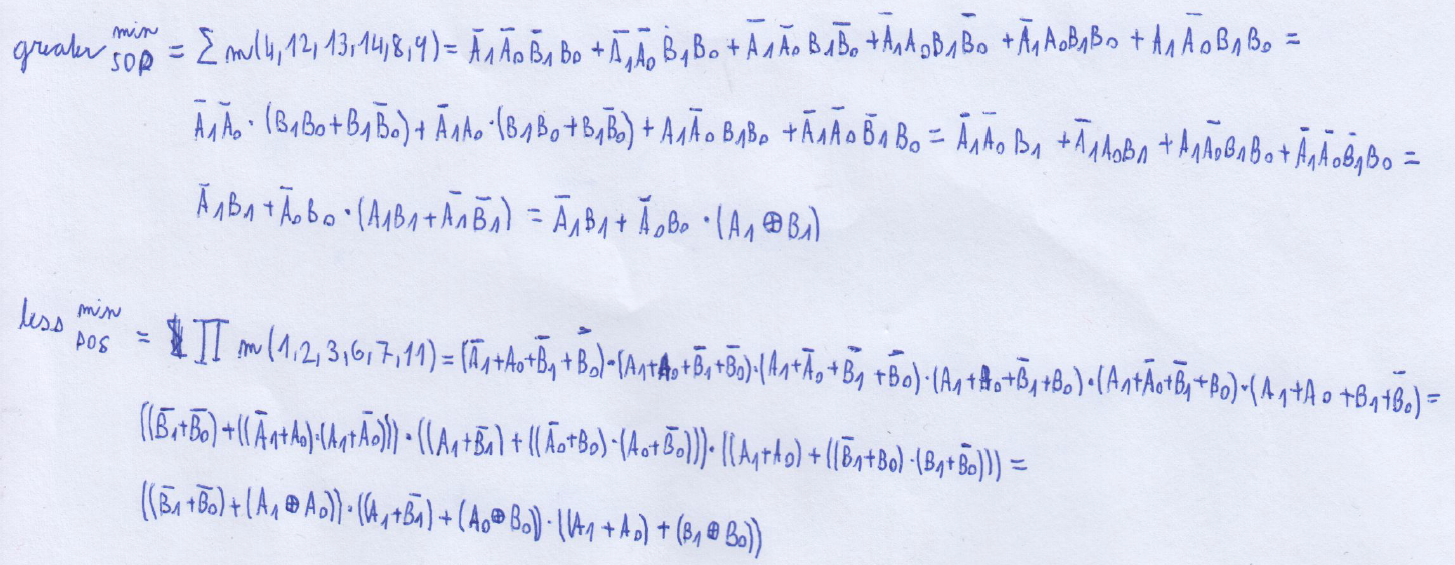 greater min SOP = Σ m(4,12,13,14,8,9) = Ā₁Ā₀B̄₁B₀ + Ā₁Ā₀B₁B₀ + Ā₁Ā₀B₁B̄₀ + Ā₁A₀B₁B̄₀ + Ā₁A₀B₁B₀ + A₁Ā₀B₁B₀ =
Ā₁Ā₀·(B₁B₀+B₁B̄₀) + Ā₁A₀·(B₁B₀+B₁B̄₀) + A₁Ā₀B₁B₀ + Ā₁Ā₀B̄₁B₀ = Ā₁Ā₀B₁ + Ā₁A₀B₁ + A₁Ā₀B₁B₀ + Ā₁Ā₀B̄₁B₀ =
Ā₁B₁ + Ā₀B₀·(A₁B₁+Ā₁B̄₁) = Ā₁B₁ + Ā₀B₀·(A₁⊕B₁)
less min POS = ∏ m(1,2,3,6,7,11) = (Ā₁+A₀+B̄₁+B̄₀)·(A₁+A₀+B̄₁+B̄₀)·(A₁+Ā₀+B̄₁+B̄₀)·(A₁+A₀+B̄₁+B₀)·(A₁+Ā₀+B̄₁+B₀)·(A₁+A₀+B₁+B̄₀) =
((B̄₁+B̄₀)+((Ā₁+A₀)·(A₁+Ā₀)))·((A₁+B̄₁)+((Ā₀+B₀)·(A₀+B̄₀)))·((A₁+A₀)+((B̄₁+B₀)·(B₁+B̄₀))) =
((B̄₁+B̄₀)+(A₁⊕A₀))·((A₁+B̄₁)+(A₀⊕B₀))·((A₁+A₀)+(B₁⊕B₀))